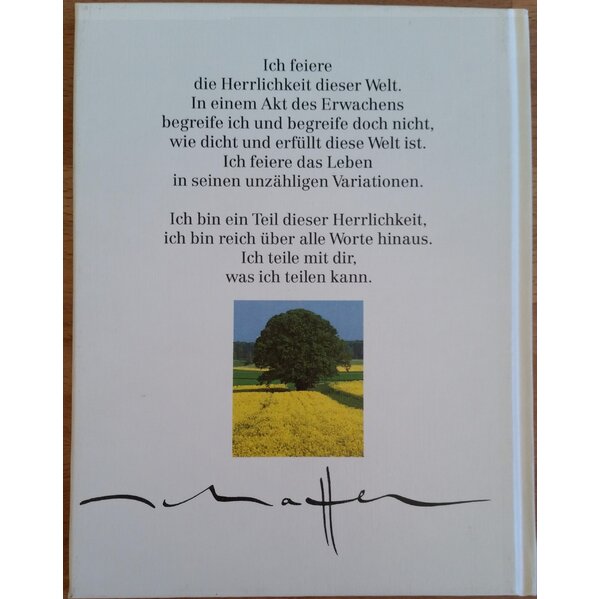 Ich feiere
die Herrlichkeit dieser Welt.
In einem Akt des Erwachens
begreife ich und begreife doch nicht,
wie dicht und erfüllt diese Welt ist.
Ich feiere das Leben
in seinen unzähligen Variationen.
Ich bin ein Teil dieser Herrlichkeit,
ich bin reich über alle Worte hinaus.
Ich teile mit dir,
was ich teilen kann.